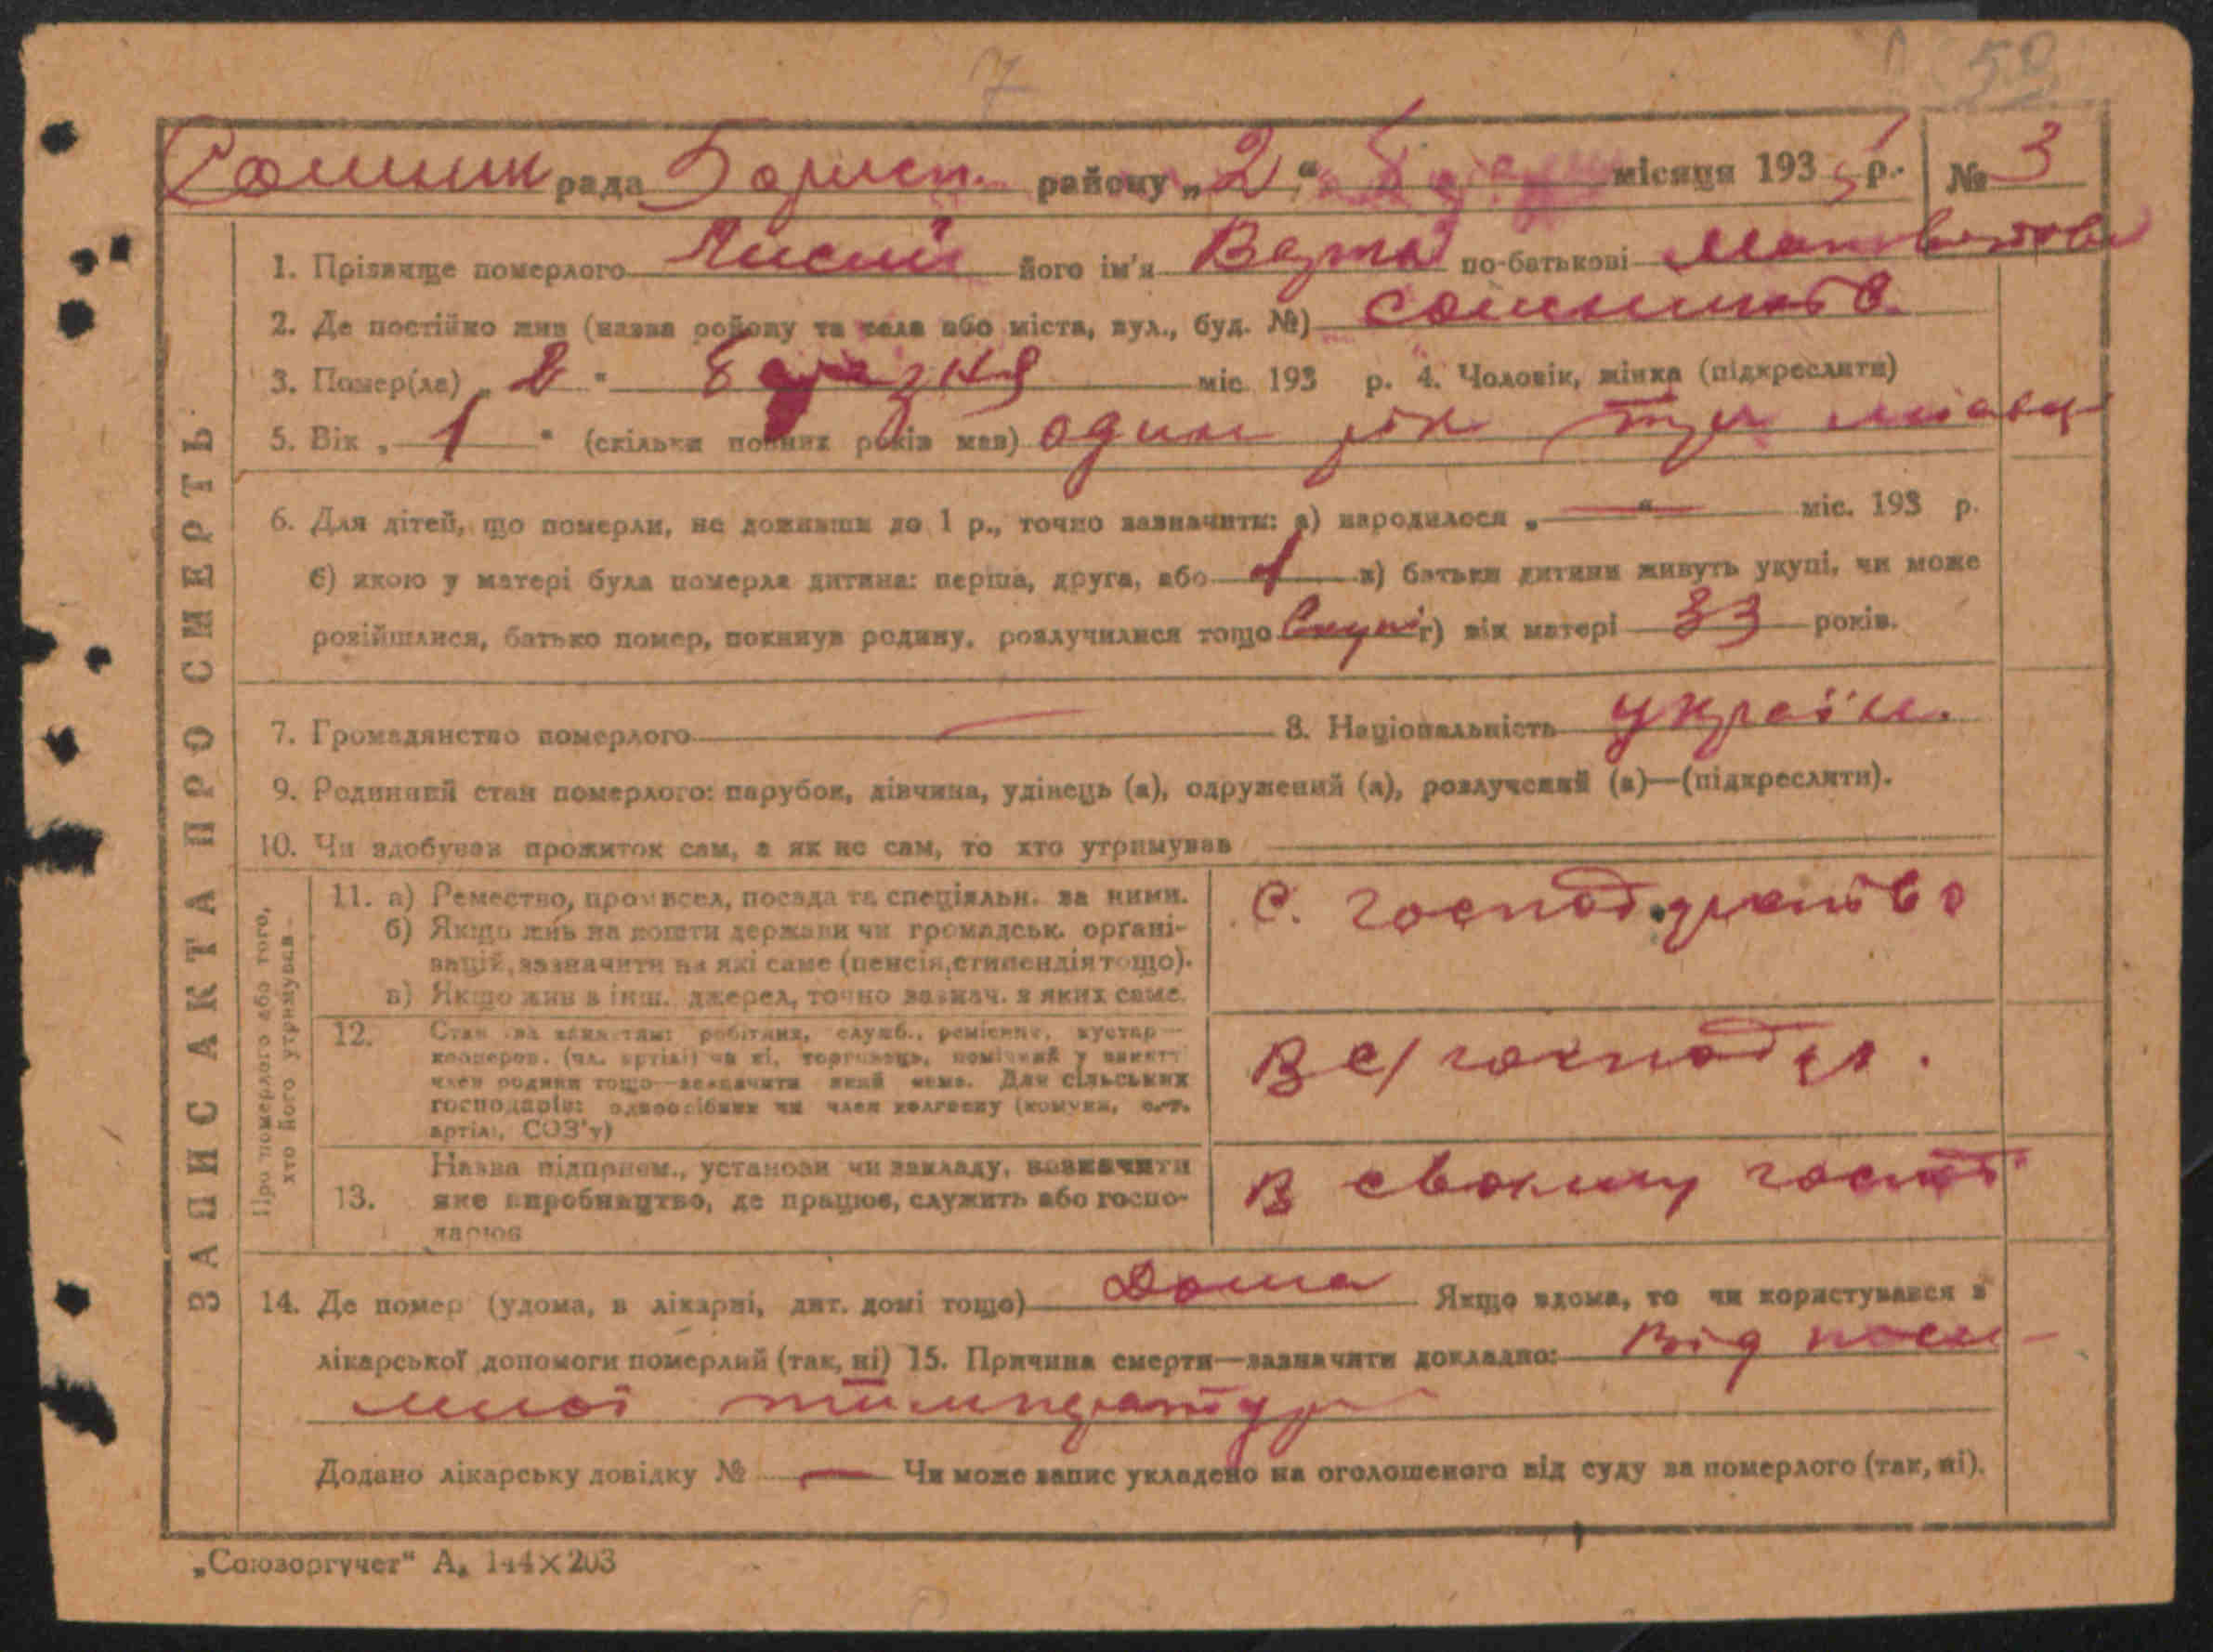 7 52
Сошник рада Борисп. району „2“ березня місяця 1935 р. № 3
ЗАПИС АКТА ПРО СМЕРТЬ
1. Прізвище померлого Лисий його ім'я по-батькові
2. Де постійно жив (назва району та села або міста, вул., буд. №)
3. Помер(ла) „2“ березня міс. 193 р. 4. Чоловік, жінка (підкреслити)
5. Вік „1“ (скільки повних років мав) один рік три місяц
6. Для дітей, що померли, не доживши до 1 р., точно зазначити: а) народилося „—“— міс. 193 р.
б) якою у матері була померла дитина: перша, друга, або 1 в) батьки дитини живуть укупі, чи може
розійшлися, батько помер, покинув родину, розлучилися тощо Вкупі г) вік матері 33 років.
7. Громадянство померлого — 8. Національність україн.
9. Родинний стан померлого: парубок, дівчина, удівець (а), одружений (а), розлучений (а)—(підкреслити).
10. Чи здобував прожиток сам, а як не сам, то хто утримував
Про померлого або того,
хто його утримував
11. а) Ремество, промисел, посада та спеціяльн. за ними.
б) Якщо жив на кошти держави чи громадськ. органі-
зацій, зазначити на які саме (пенсія, стипендія тощо).
в) Якщо жив з інш. джерел, точно зазнач. з яких саме.
С. господарство
12. Стан за заняттям: робітник, служб., ремісник, кустар—
кооперов. (чл. артілі) чи ні, торговець, помічний у занятті
член родини тощо—зазначити який саме. Для сільських
господарів: одноосібник чи член колгоспу (комуни, с.-г.
артілі, СОЗ'у)
В с/господ
13. Назва підприєм., установи чи закладу, зазначити
яке виробництво, де працює, служить або госпо-
дарює
В своєму госпо
14. Де помер (удома, в лікарні, дит. домі тощо) Дома Якщо вдома, то чи користувався з
лікарської допомоги померлий (так, ні) 15. Причина смерти—зазначити докладно: Від
температури
Додано лікарську довідку № — Чи може запис укладено на оголошеного від суду за померлого (так, ні).
„Союзоргучет“ А₅ 144×203